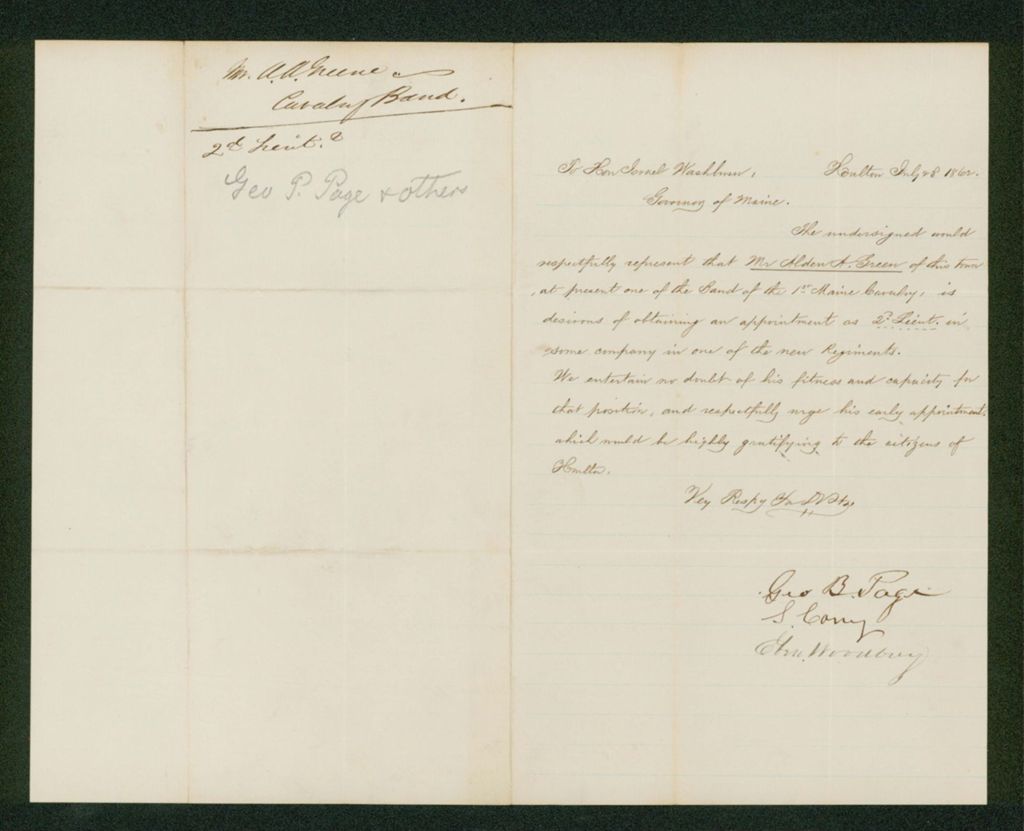 Mr. A. A. Greene
Cavalry Band.
2d Lieut.
Geo P. Page & others
To Hon Israel Washburn, Houlton July 28 1862.
Governor of Maine.
The undersigned would
respectfully represent that Mr Alden A. Green of this town
, at present one of the Band of the 1st Maine Cavalry, is
desirous of obtaining an appointment as 2d Lieut. in
some company in one of the new Regiments.
We entertain no doubt of his fitness and capacity for
that position, and respectfully urge his early appointment,
which would be highly gratifying to the citizens of
Houlton.
Very Respy
Geo B. Page
S. Cony
Woodbury